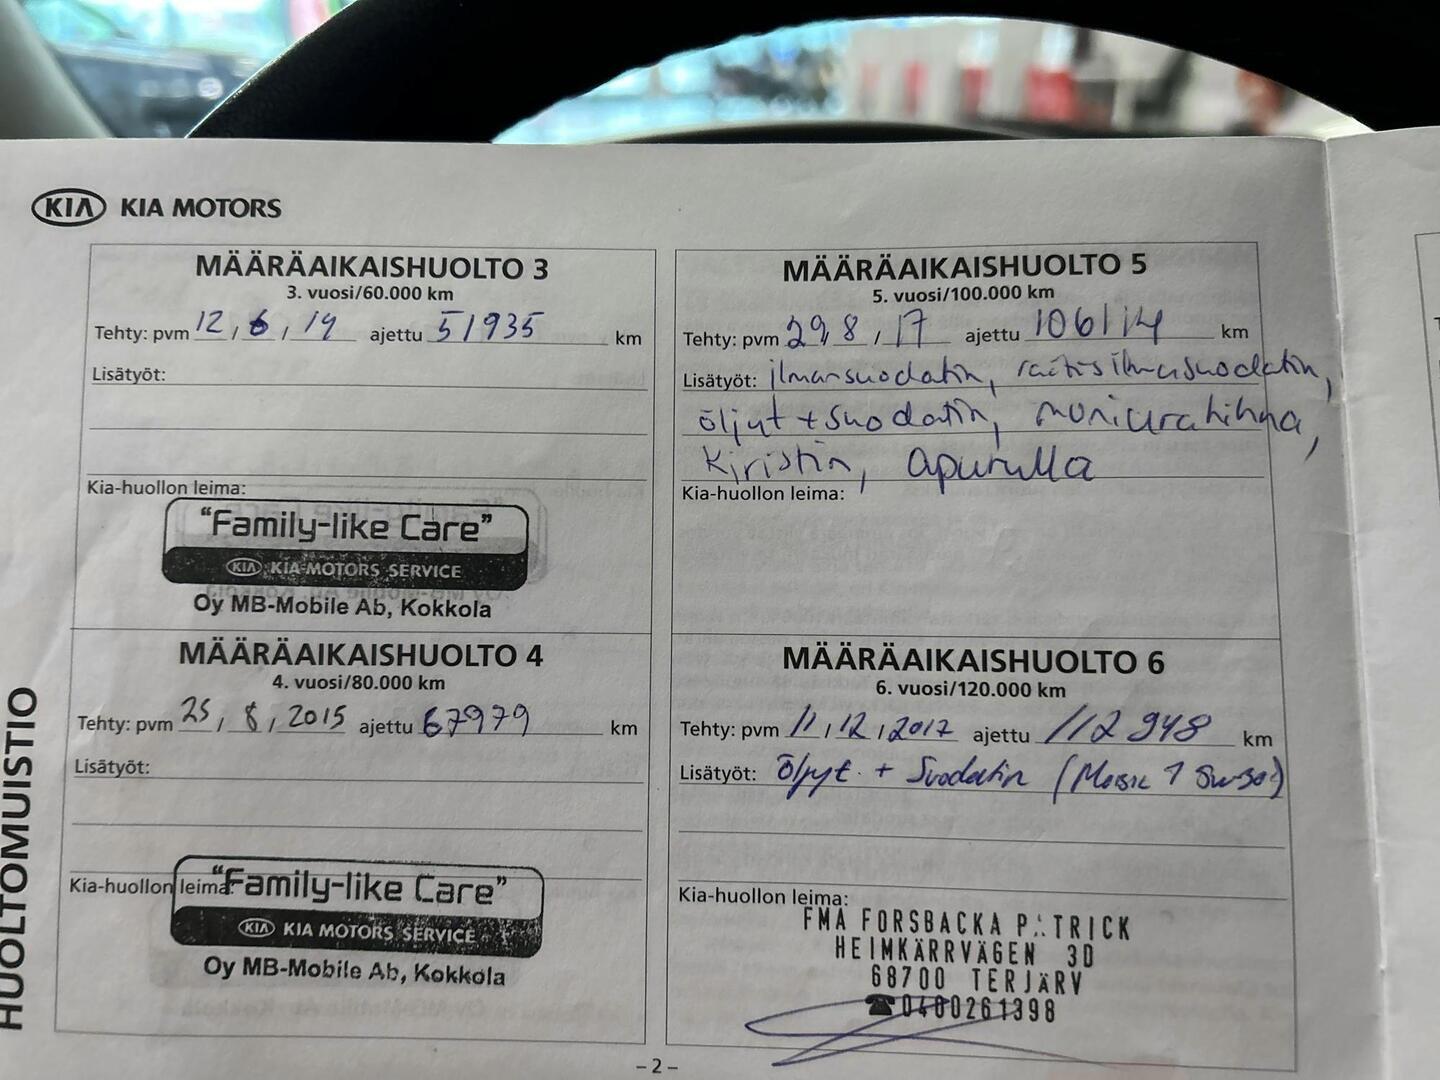 KIA KIA MOTORS
HUOLTOMUISTIO
MÄÄRÄAIKAISHUOLTO 3
3. vuosi/60.000 km
Tehty: pvm 12, 6, 14 ajettu 51935 km
Lisätyöt:
Kia-huollon leima:
"Family-like Care"
KIA KIA MOTORS SERVICE
Oy MB-Mobile Ab, Kokkola
MÄÄRÄAIKAISHUOLTO 4
4. vuosi/80.000 km
Tehty: pvm 25, 8, 2015 ajettu 67979 km
Lisätyöt:
Kia-huollon leima:
"Family-like Care"
KIA KIA MOTORS SERVICE
Oy MB-Mobile Ab, Kokkola
MÄÄRÄAIKAISHUOLTO 5
5. vuosi/100.000 km
Tehty: pvm 29, 8, 17 ajettu 106114 km
Lisätyöt: ilmansuodatin, raitisilmasuodatin,
öljyt + suodatin, moniurahihna,
kiristin, apurulla
Kia-huollon leima:
MÄÄRÄAIKAISHUOLTO 6
6. vuosi/120.000 km
Tehty: pvm 11, 12, 2017 ajettu 112948 km
Lisätyöt: Öljyt + Suodatin (
Kia-huollon leima:
FMA FORSBACKA PATRICK
HEIMKÄRRVÄGEN 3D
68700 TERJÄRV
☎0400261398
- 2 -